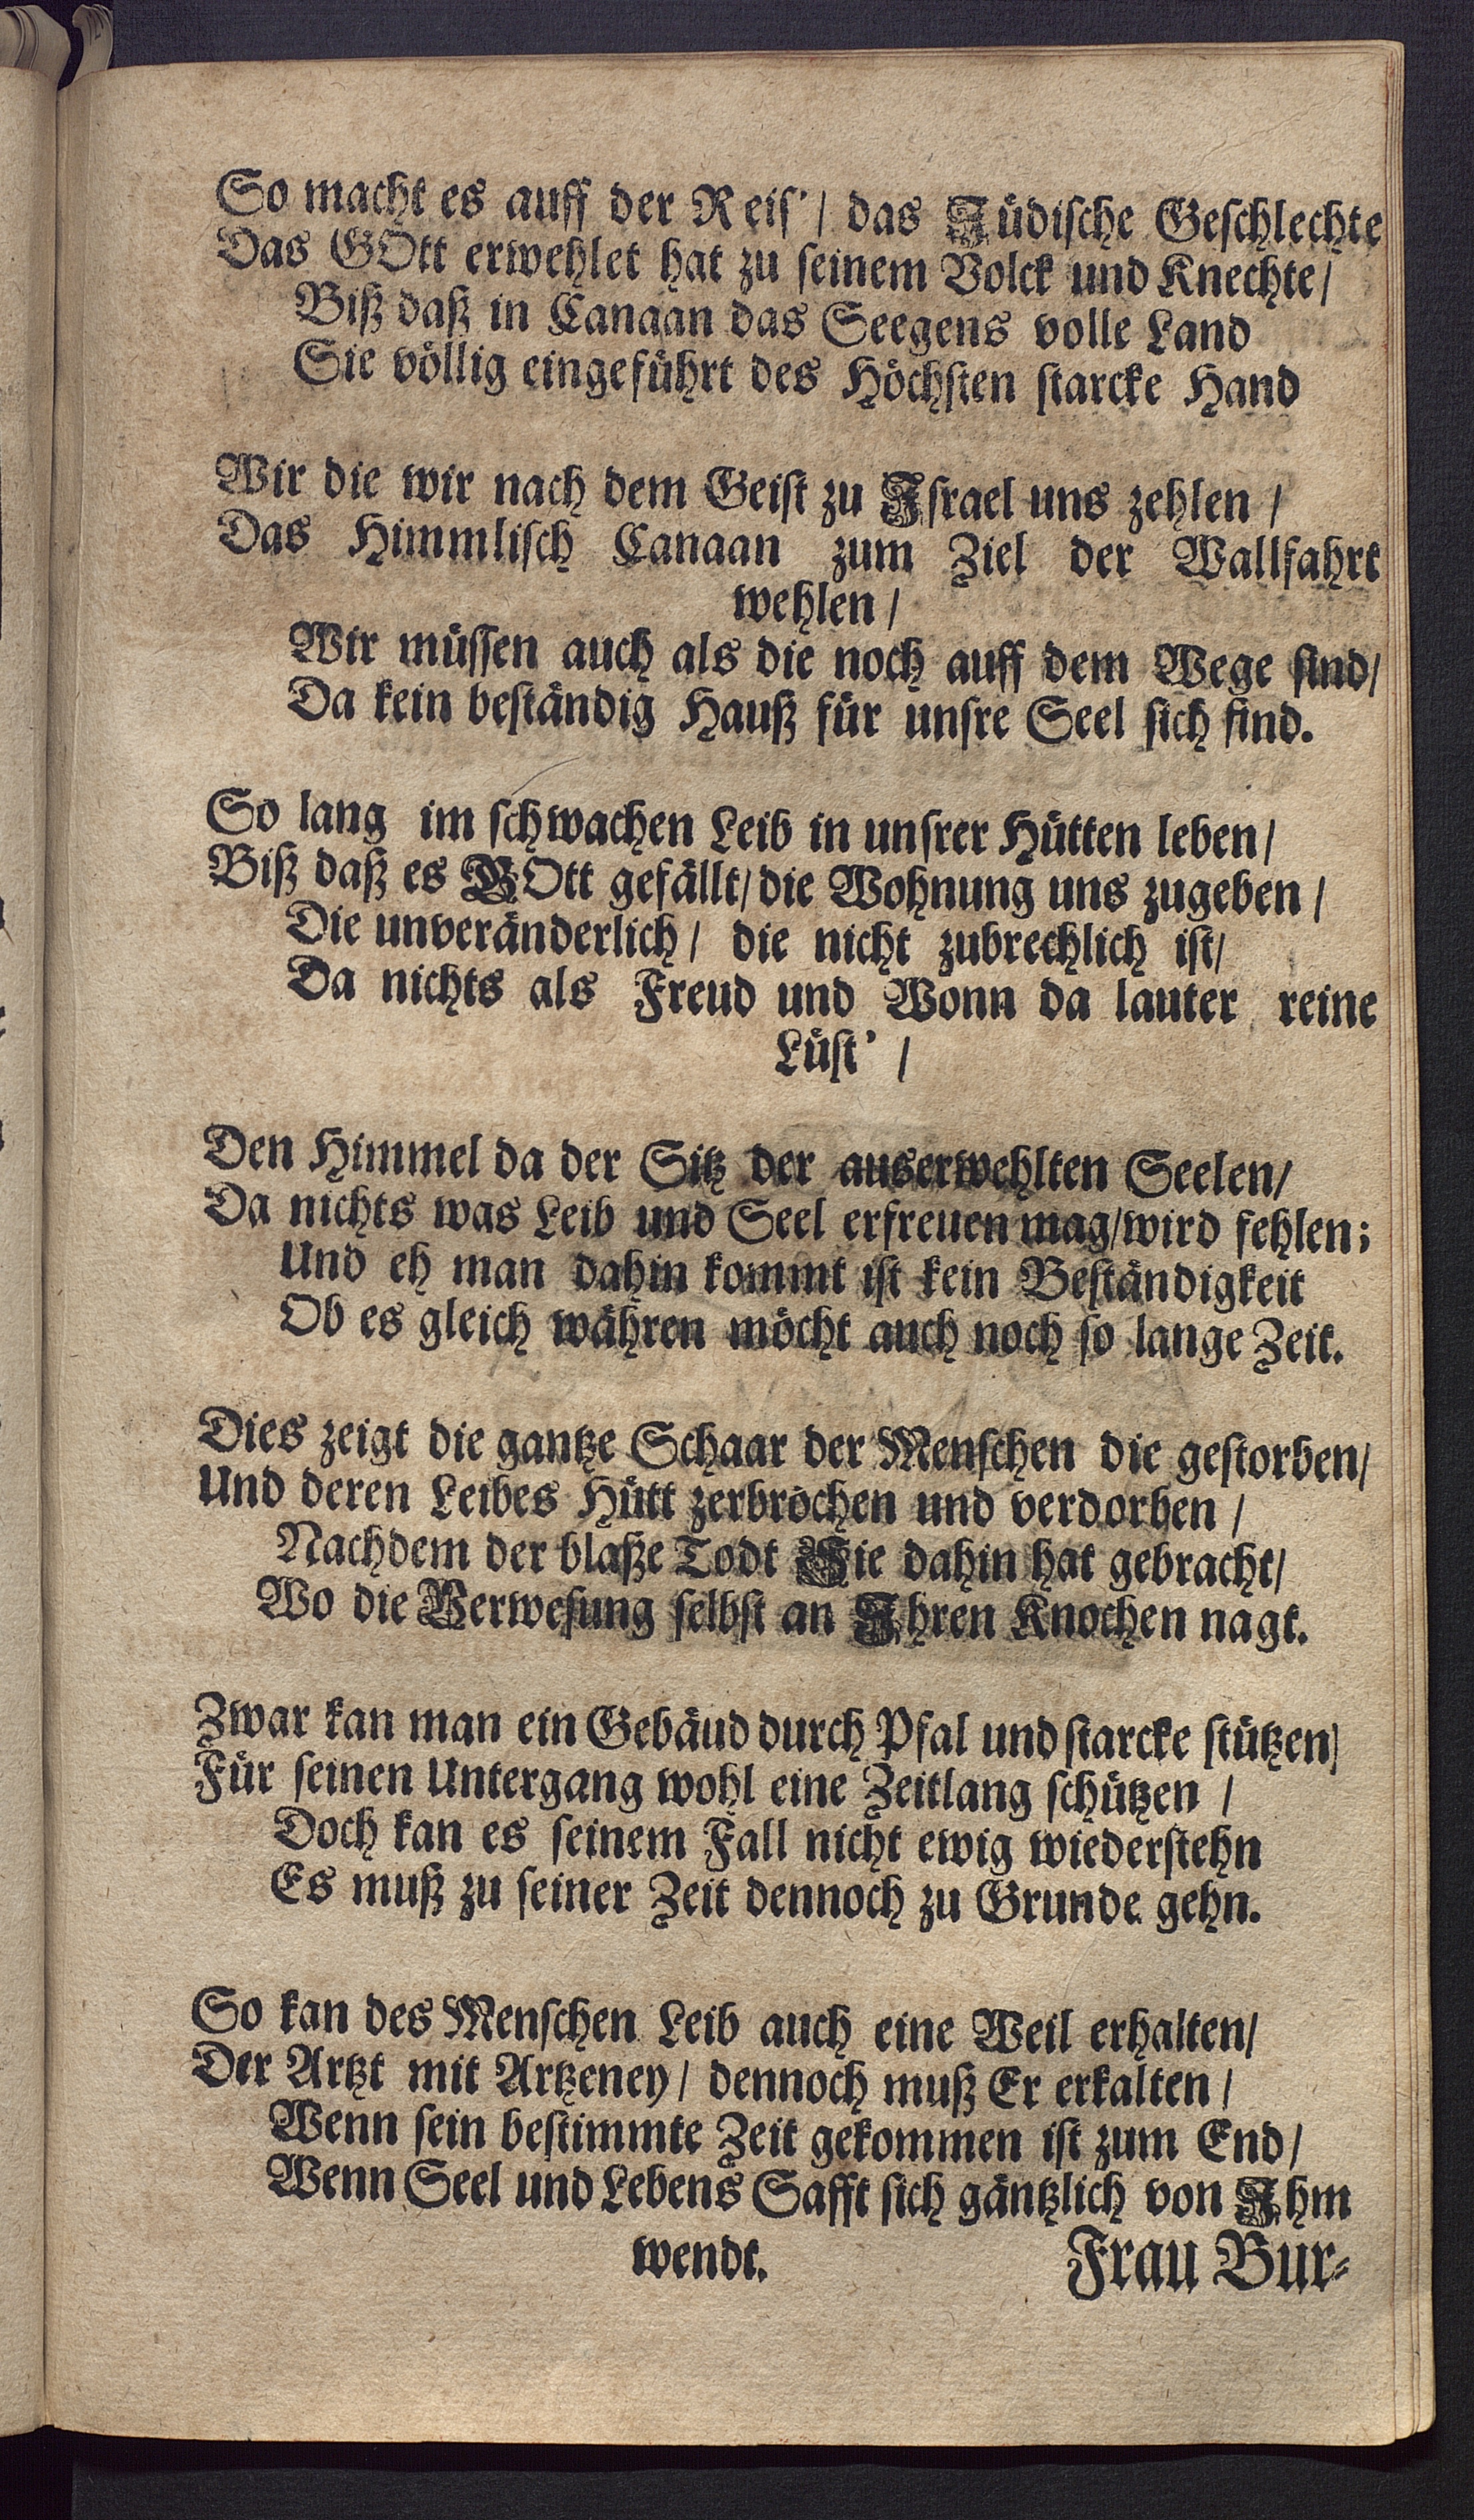 So macht es auff der Reis'/ das Jüdische Geschlechte
Das GOtt erwehlet hat zu seinem Volck und Knechte/
Biß daß in Canaan das Seegens volle Land
Sie völlig eingeführt des Höchsten starcke Hand
Wir die wir nach dem Geist zu Israel uns zehlen /
Das Himmlisch Canaan zum Ziel der Wallfahrt
wehlen /
Wir müssen auch als die noch auff dem Wege sind/
Da kein beständig Hauß für unsre Seel sich find.
So lang im schwachen Leib in unsrer Hütten leben /
Biß daß es GOtt gefällt/ die Wohnung uns zugeben /
Die unveränderlich / die nicht zubrechlich ist/
Da nichts als Freud und Wonn da lauter reine
Lüst' /
Den Himmel da der Sitz der auserwehlten Seelen/
Da nichts was Leib und Seel erfreuen mag/wird fehlen;
Und eh man dahin kommt ist kein Beständigkeit
Ob es gleich währen möcht auch noch so lange Zeit.
Dies zeigt die gantze Schaar der Menschen die gestorben/
Und deren Leibes Hütt zerbrochen und verdorben /
Nachdem der blaße Todt Sie dahin hat gebracht/
Wo die Verwesung selbst an Ihren Knochen nagt.
Zwar kan man ein Gebäud durch Pfal und starcke stützen/
Für seinen Untergang wohl eine Zeitlang schützen /
Doch kan es seinem Fall nicht ewig wiederstehn
Es muß zu seiner Zeit dennoch zu Grunde gehn.
So kan des Menschen Leib auch eine Weil erhalten/
Der Artzt mit Artzeney / dennoch muß Er erkalten /
Wenn sein bestimmte Zeit gekommen ist zum End /
Wenn Seel und Lebens Safft sich gäntzlich von Ihm
wendt. Frau Bur-